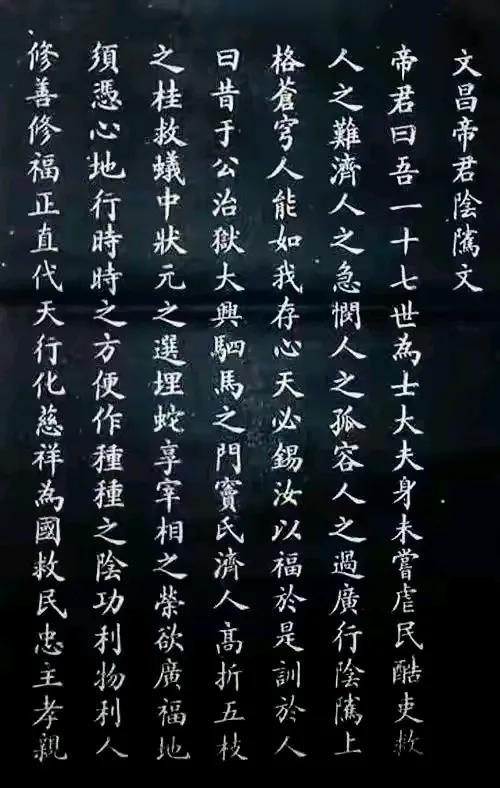 文昌帝君陰隲文
帝君曰吾一十七世為士大夫身未嘗虐民酷吏救
人之難濟人之急憫人之孤容人之過廣行陰隲上
格蒼穹人能如我存心天必錫汝以福於是訓於人
曰昔于公治獄大興駟馬之門竇氏濟人高折五枝
之桂救蟻中狀元之選埋蛇享宰相之榮欲廣福地
須憑心地行時時之方便作種種之陰功利物利人
修善修福正直代天行化慈祥為國救民忠主孝親